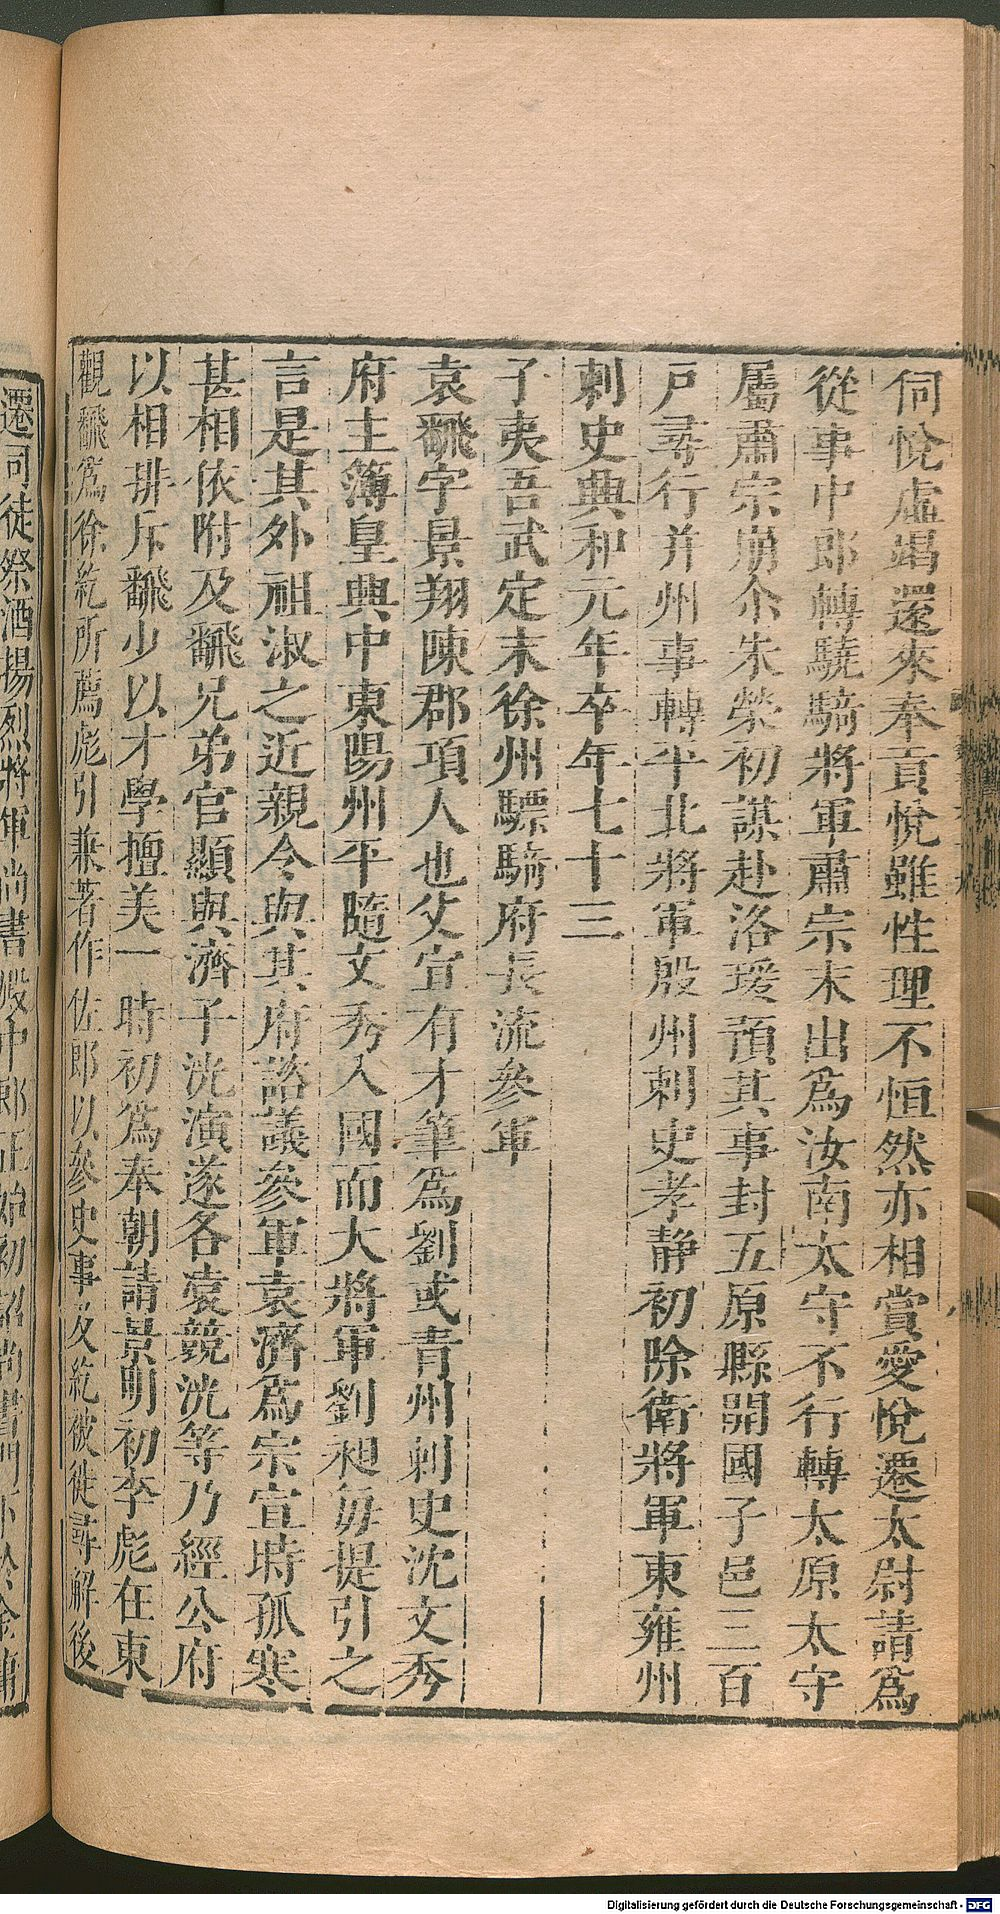 伺悅虛竭還來奉貢悅雖性理不恒然亦相賞愛悅遷太尉請爲
從事中郎轉驍騎將軍肅宗末出爲汝南太守不行轉太原太守
屬肅宗崩尒朱榮初謀赴洛瑗預其事封五原縣開國子邑三百
戸尋行并州事轉平北將軍殷州刺史孝静初除衛將軍東雍州
刺史興和元年卒年七十三
子夷吾武定末徐州驃騎府長流參軍
袁飜字景翔陳郡項人也父宣有才筆爲劉彧青州刺史沈文秀
府主簿皇興中東陽州平隨文秀入國而大將軍劉昶毎提引之
言是其外祖淑之近親令與其府諮議參軍袁濟爲宗宣時孤寒
甚相依附及飜兄弟官顯與濟子洸演遂各袁競洸等乃經公府
以相排斥飜少以才學擅美一時初爲奉朝請景明初李彪在東
觀飜爲徐紇所薦彪引兼著作佐郎以參史事及紇被徙尋解後
遷司徒祭酒揚烈將軍尚書殿中郎正始初詔尚書門下於金墉
Digitalisierung gefördert durch die Deutsche Forschungsgemeinschaft - DFG